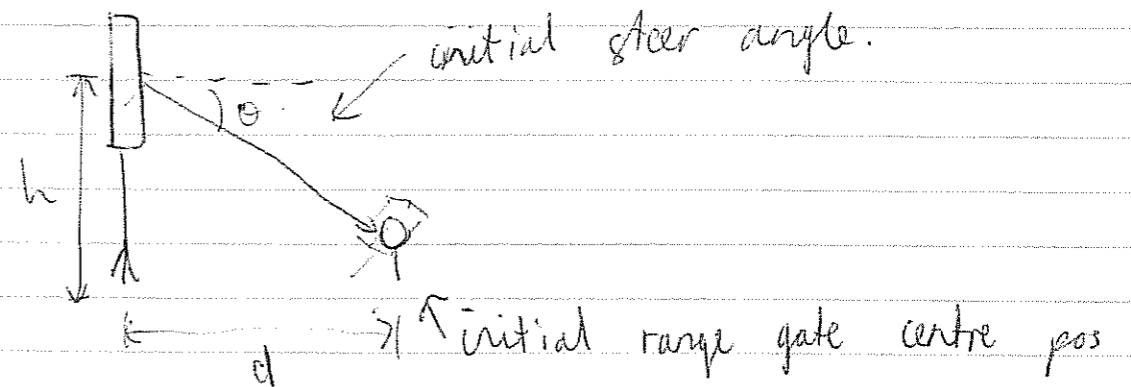 initial steer angle.
θ
h
d
initial range gate centre pos